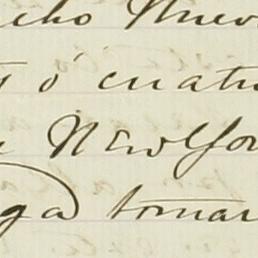 cho Nuev
ó cuatr
New Yor
ga tomar